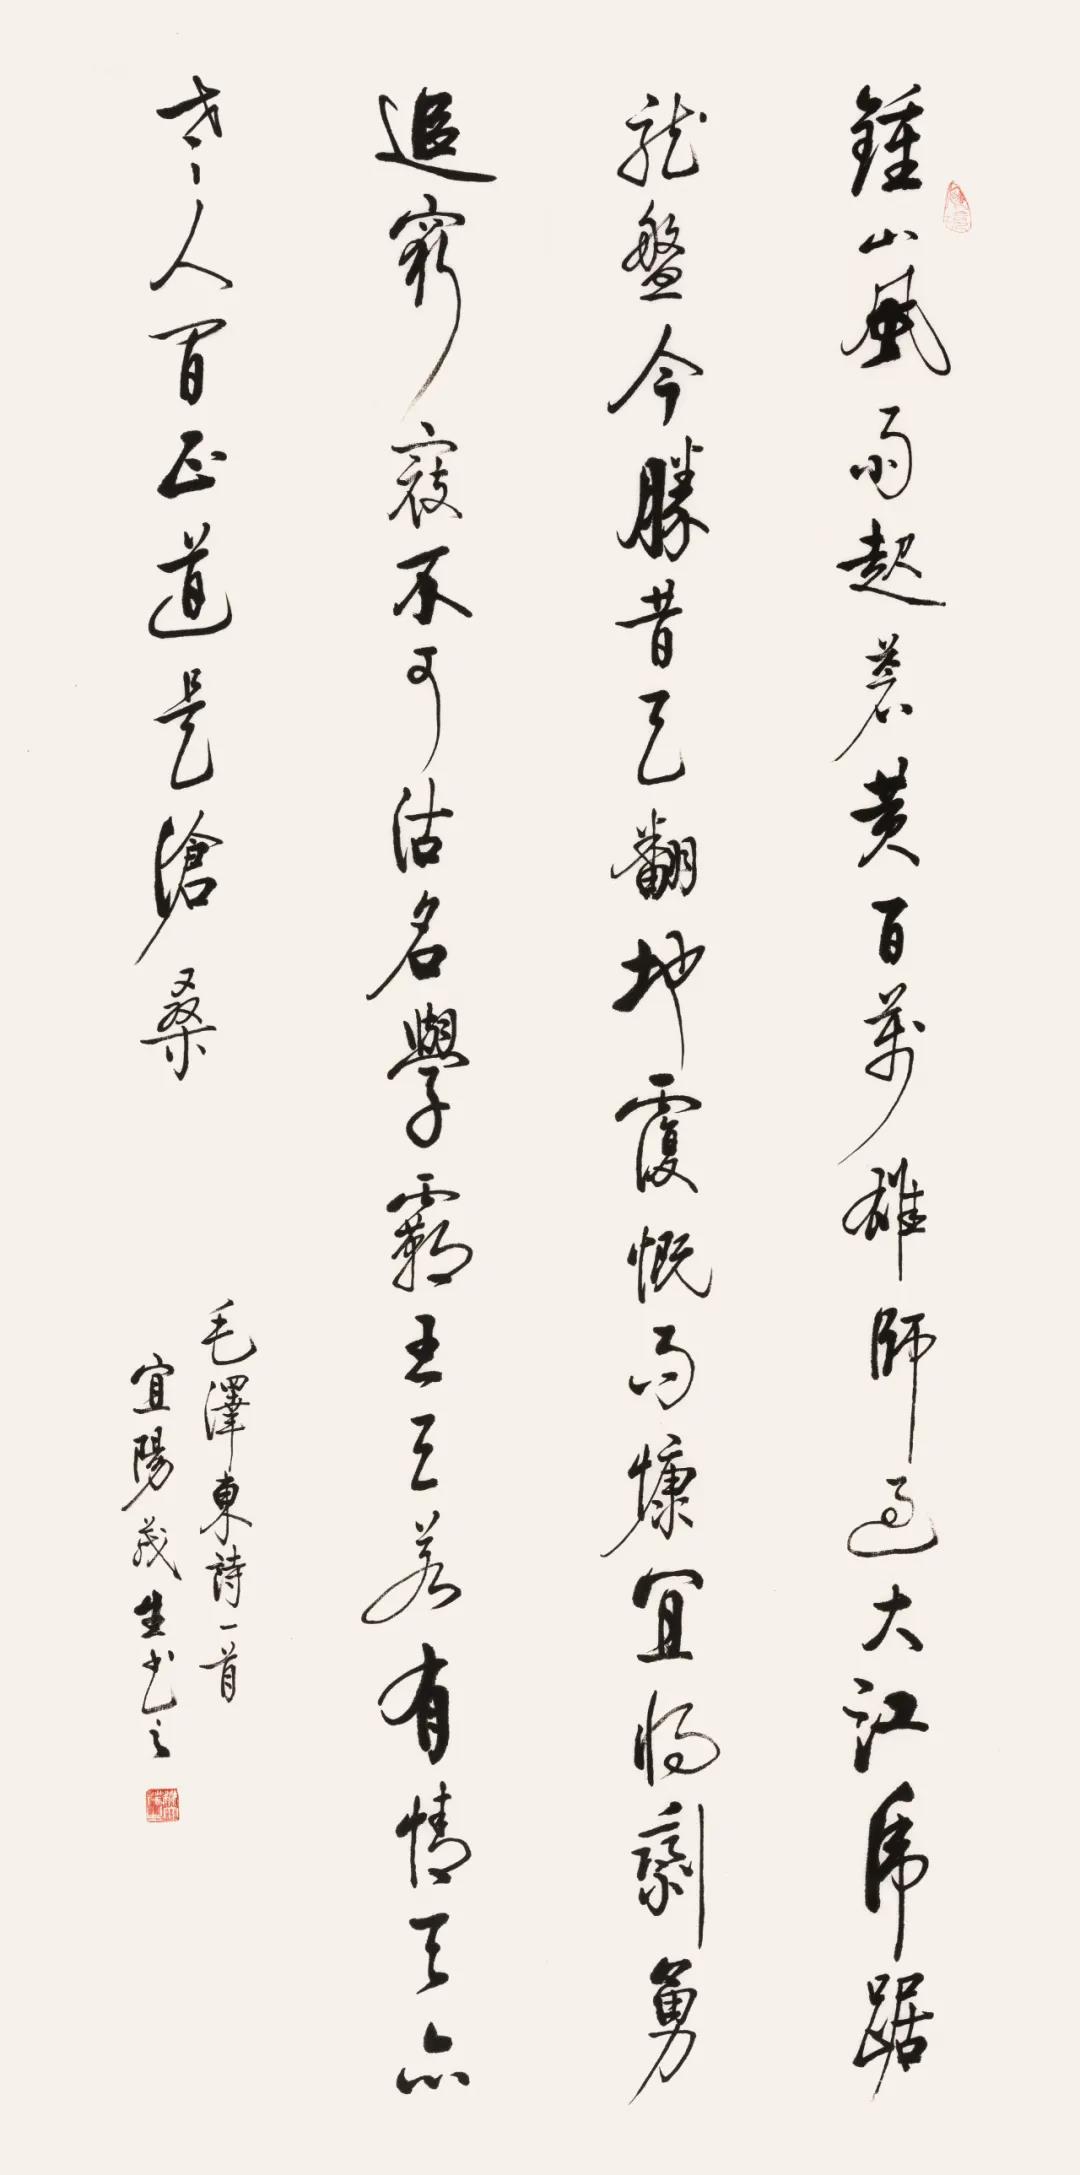 鍾山風雨起蒼黃百萬雄師過大江虎踞
龍盤今勝昔天翻地覆慨而慷宜將剩勇
追窮寇不可沽名學霸王天若有情天亦
老人間正道是滄桑
毛澤東詩一首
宜陽茂生书之